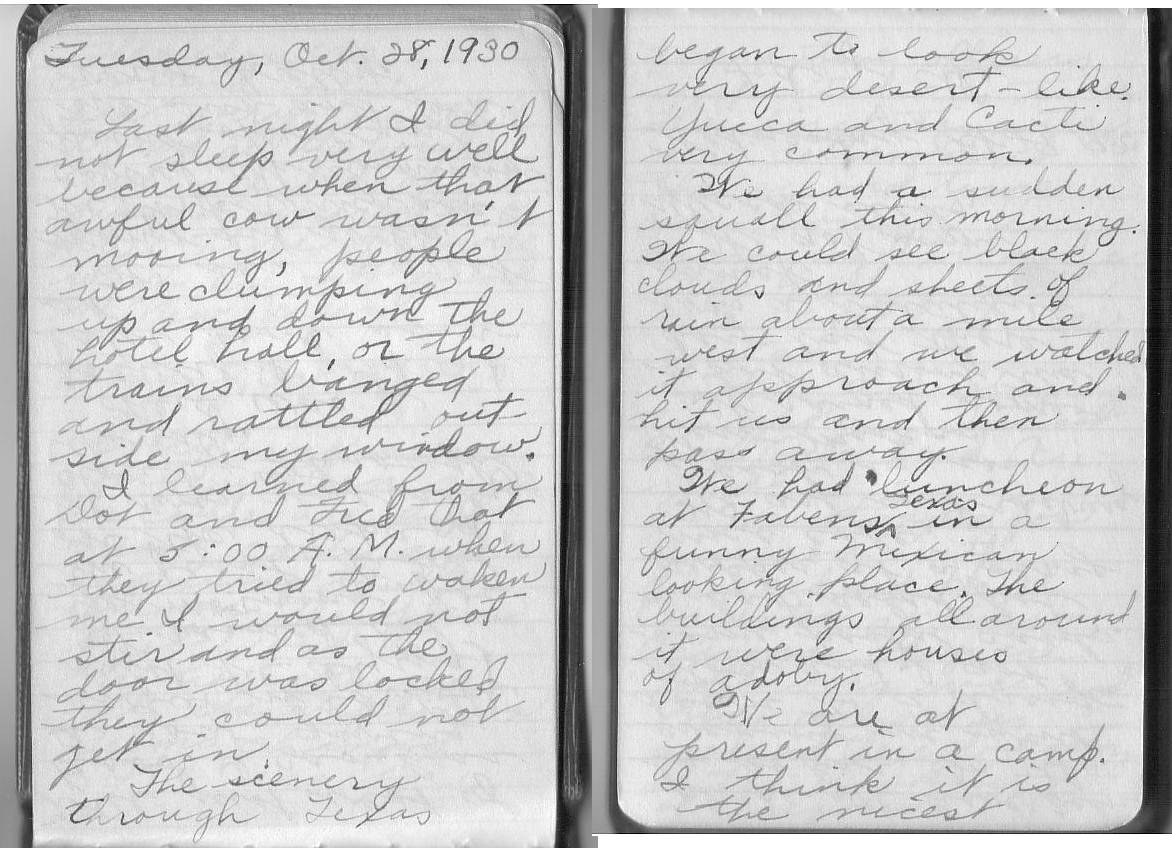 Tuesday, Oct. 28, 1930
Last night I did
not sleep very well
because when that
awful cow wasn't
mooing, people
were clumping
up and down the
hotel hall, or the
trains banged
and rattled out
side my window.
I learned from
Dot and Fred that
at 5:00 A. M. when
they tried to waken
me I would not
stir and as the
door was locked
they could not
get in.
The scenery
through Texas
began to look
very desert-like.
Yucca and Cacti
very common.
We had a sudden
squall this morning.
We could see black
clouds and sheets of
rain about a mile
west and we watched
it approach and
hit us and then
pass away.
We had luncheon
at Fabens Texas in a
funny Mexican
looking place. The
buildings all around
it were houses
of adoby.
We are at
present in a camp.
I think it is
the nicest